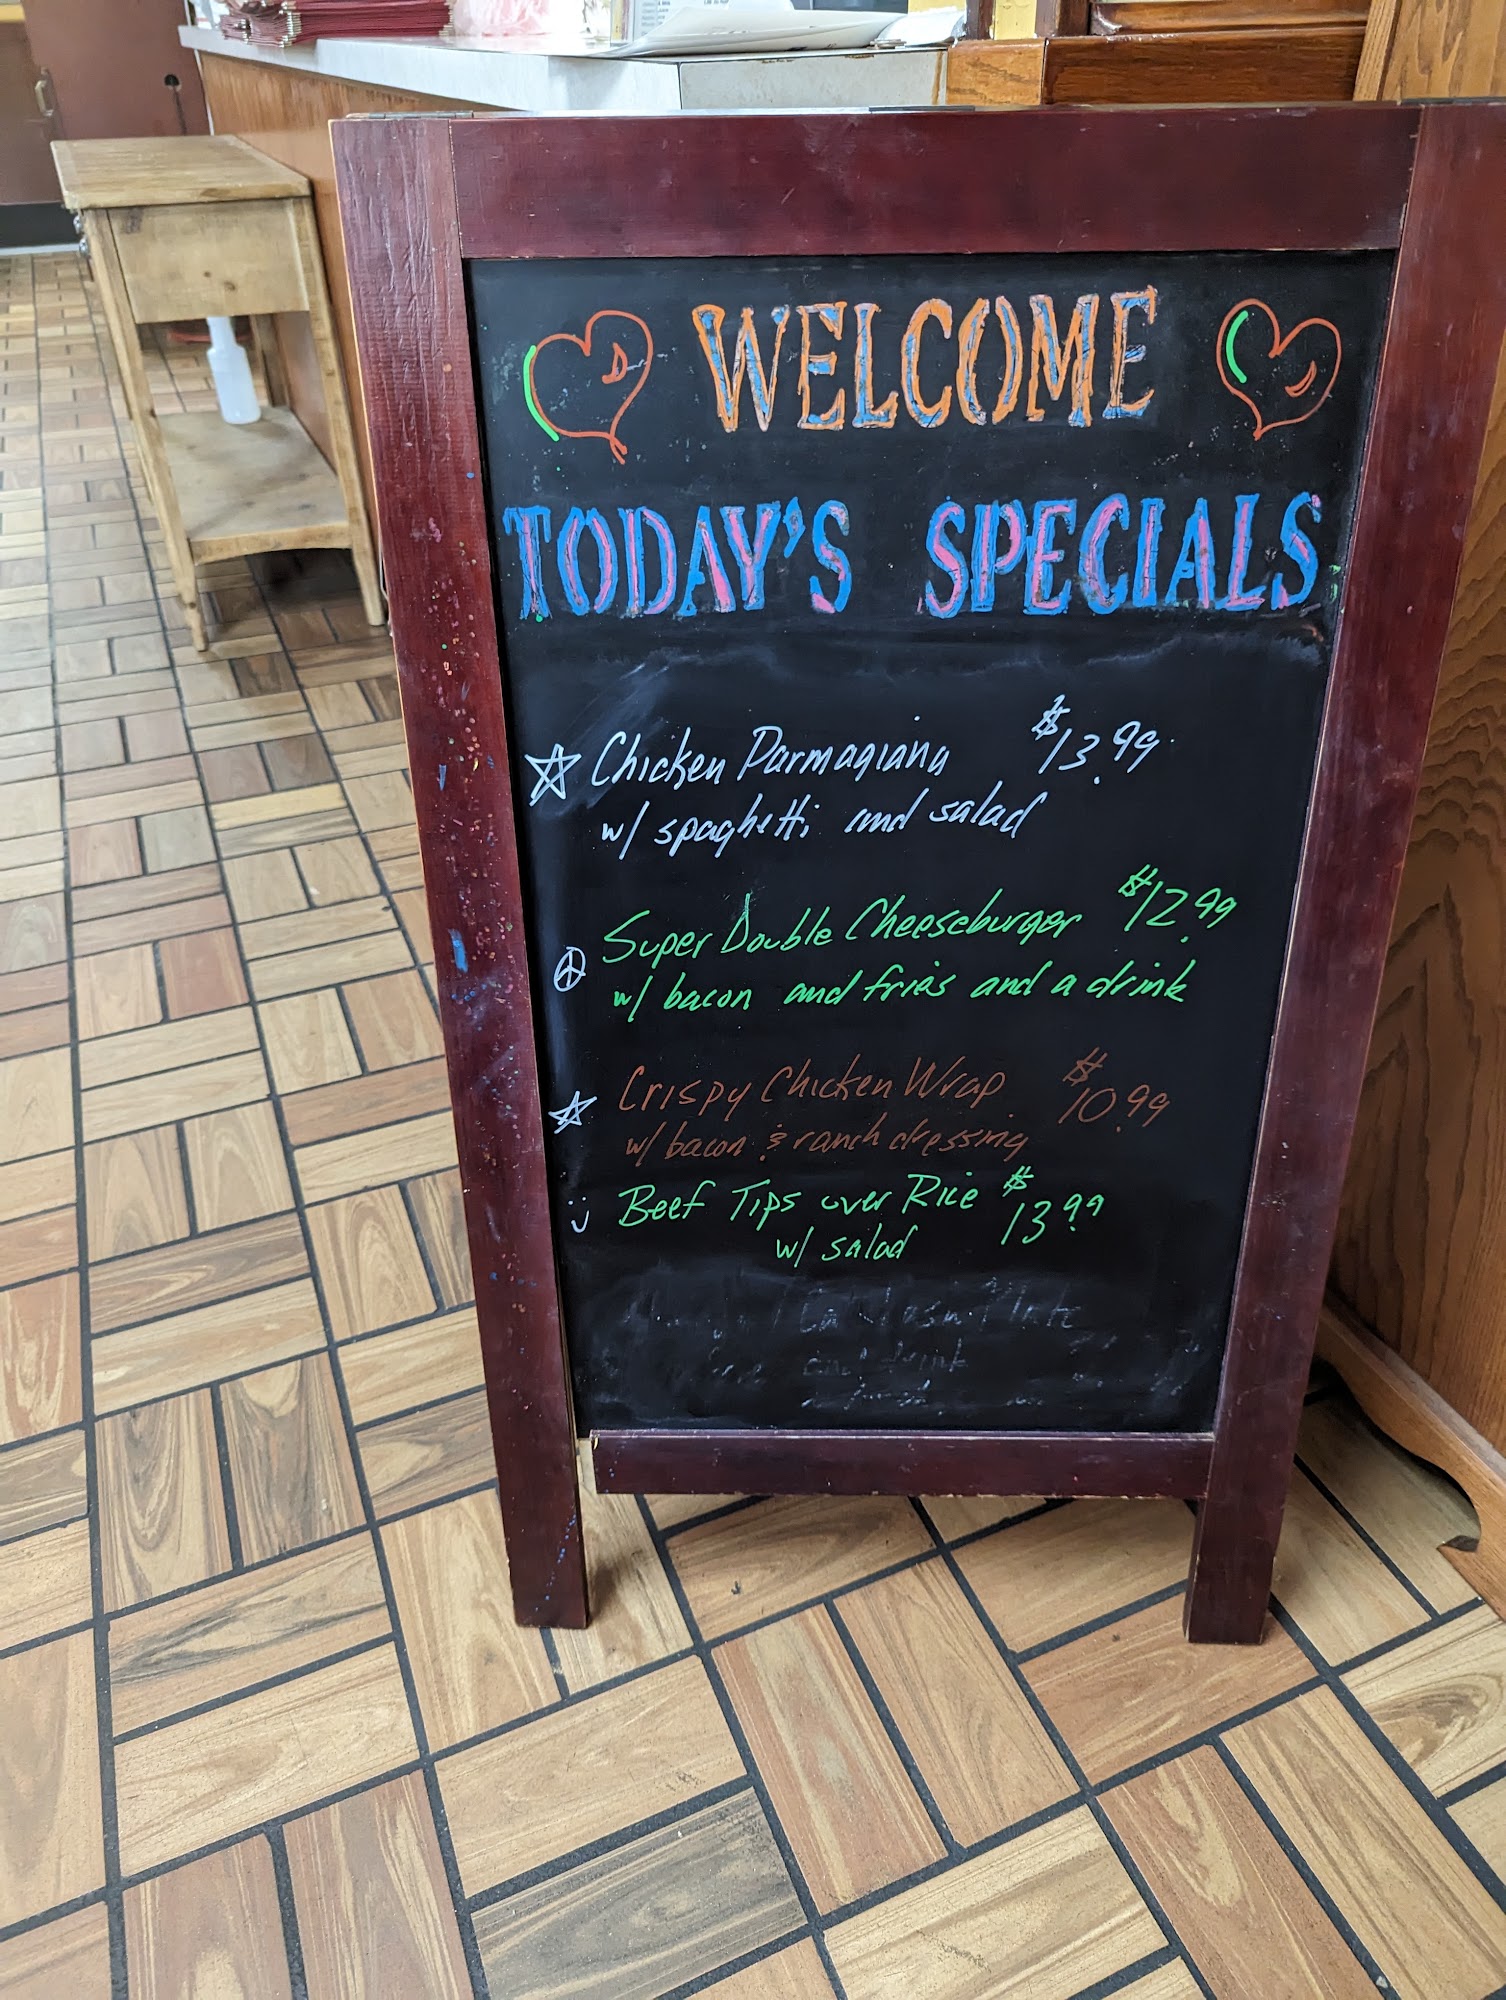 WELCOME
TODAY'S SPECIALS
Chicken Parmagiana $13.99
w/ spaghetti and salad
Super Double Cheeseburger $12.99
w/ bacon and fries and a drink
Crispy Chicken Wrap $10.99
w/ bacon & ranch dressing
Beef Tips over Rice $13.99
w/ salad
and drink